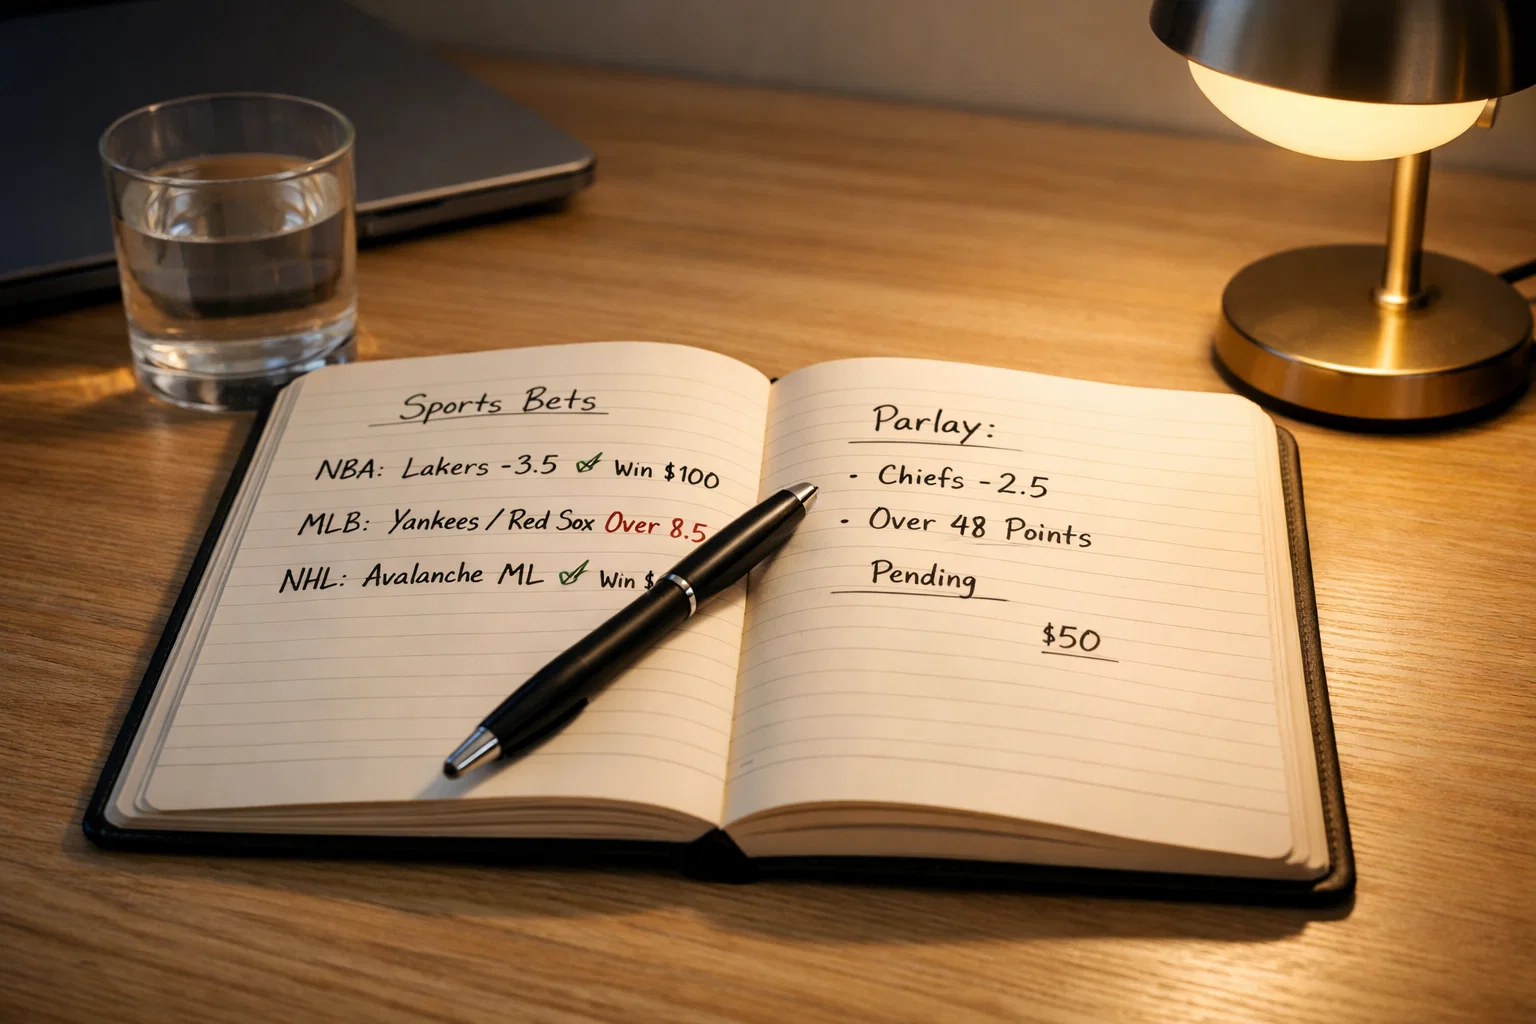 Sports Bets
NBA: Lakers -3.5 ✓ Win $100
MLB: Yankees / Red Sox Over 8.5
NHL: Avalanche ML ✓ Win $
Parlay:
- Chiefs -2.5
- Over 48 Points
Pending
$50